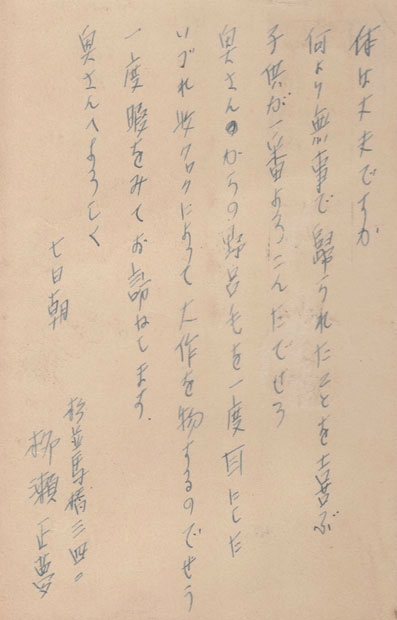 体は丈夫ですか
何より無事で歸られたことを喜ぶ
子供が一番よろこんだでせう
奥さんからの を一度耳にした
いづれ によって大作を物するのでせう
一度暇をみてお訪ねします.
奥さんへよろしく
七日朝
杉並馬橋三四〇
柳瀬正夢